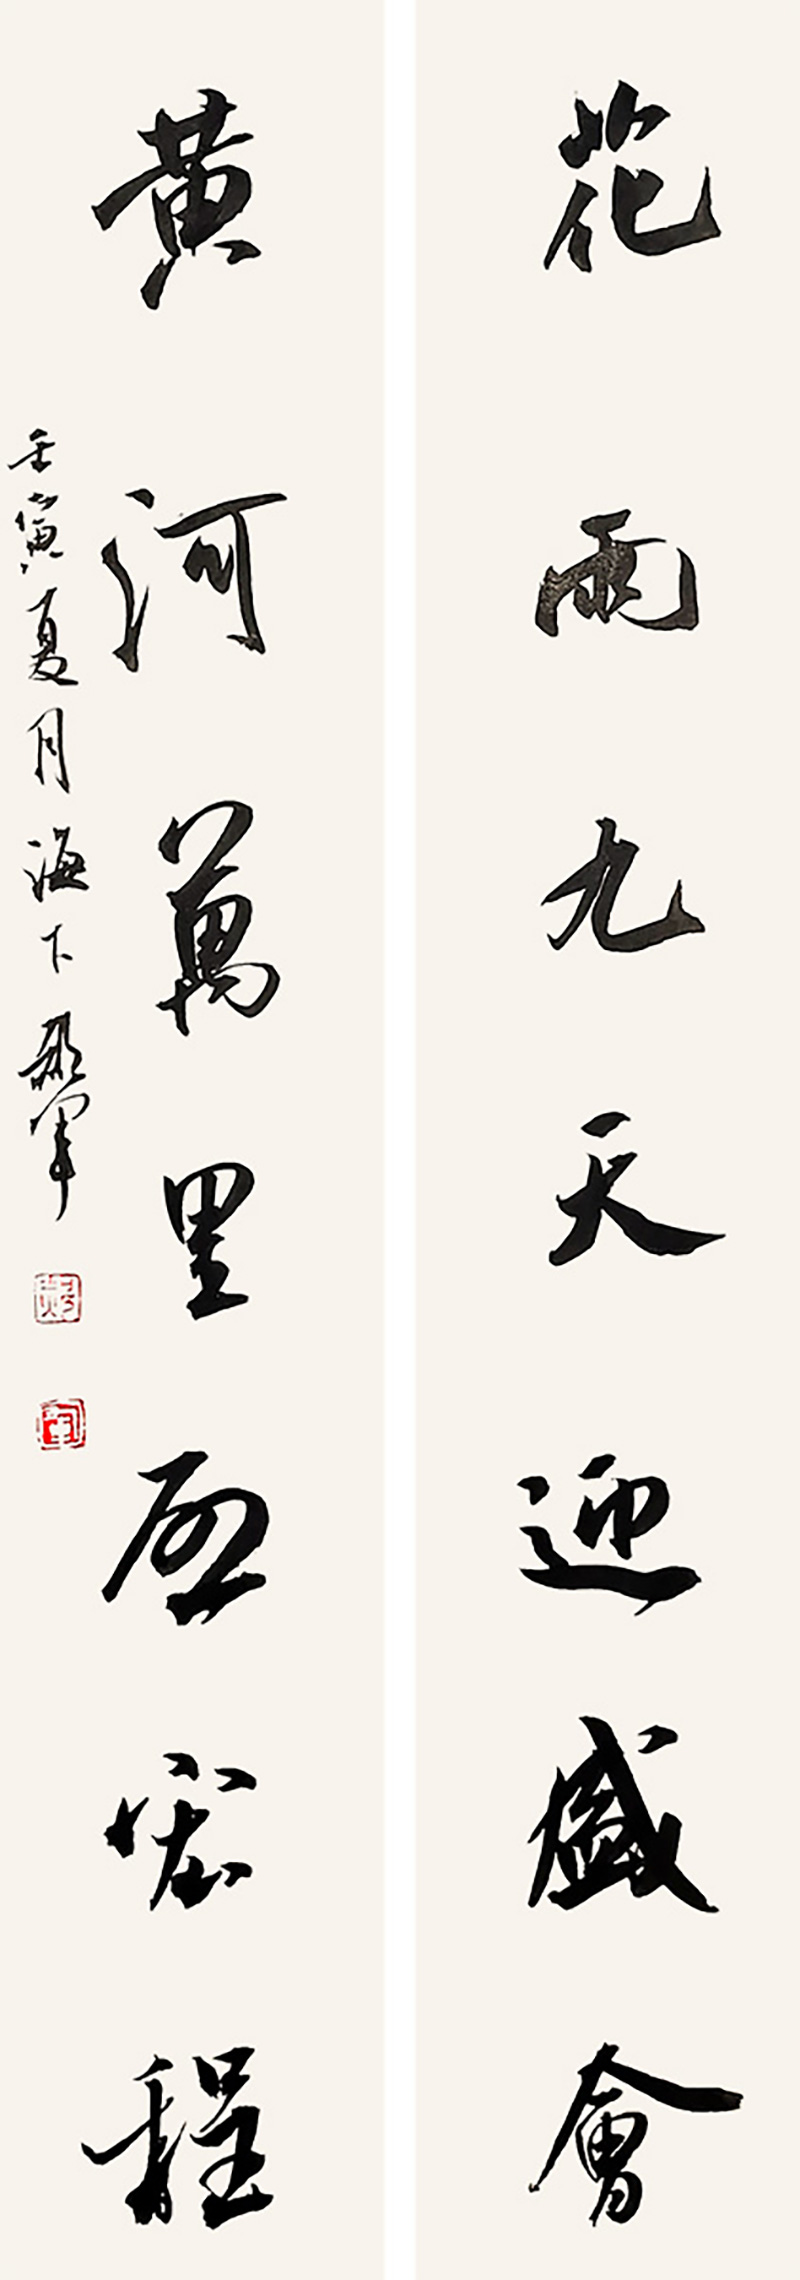 花雨九天迎盛會
黃河萬里啟宏程
壬寅夏月海下